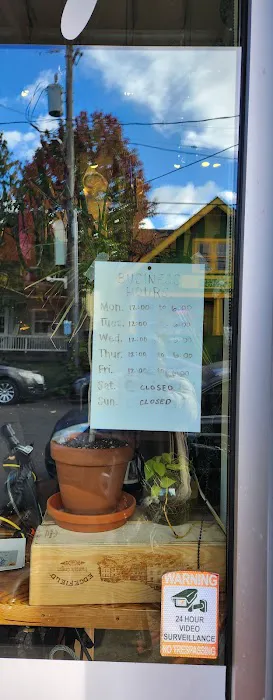 BUSINESS
HOURS
Mon. 12:00 to 6:00
Tues. 12:00 6:00
Wed. 12:00
Thur. 12:00 to 6:00
Fri. 12:00 to 6:00
Sat. CLOSED
Sun. CLOSED
EDGEFIELD
WARNING
24 HOUR
VIDEO
SURVEILLANCE
NO TRESPASSING